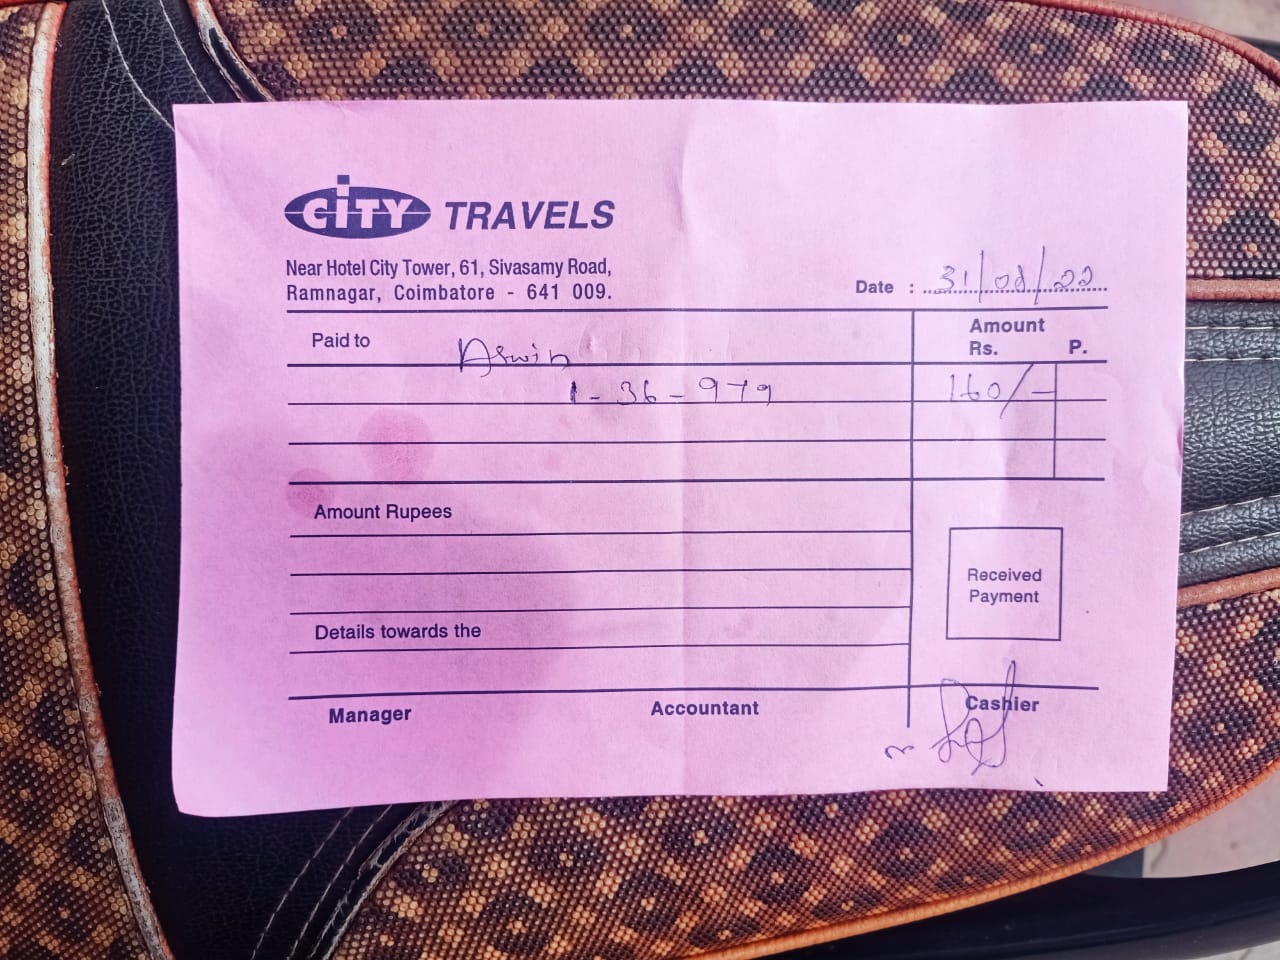 CiTY TRAVELS
Near Hotel City Tower, 61, Sivasamy Road,
Ramnagar, Coimbatore - 641 009.
Date : 31/08/22
Paid to Aswin
Amount
Rs. P.
1-36-979 160/-
Amount Rupees
Received
Payment
Details towards the
Manager Accountant Cashier